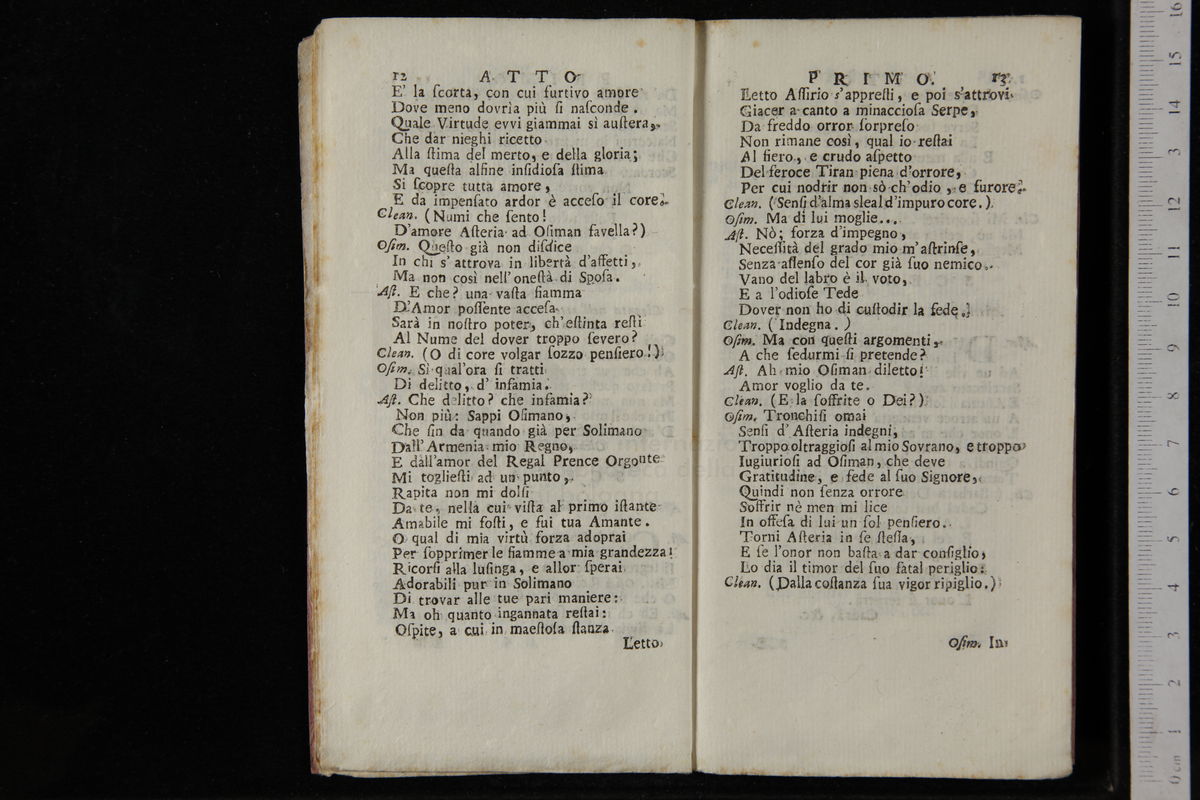 12 ATTO
E' la ſcorta, con cui furtivo amore
Dove meno dovrìa più ſi naſconde.
Quale Virtude evvi giammai sì auſtera,
Che dar nieghi ricetto
Alla ſtima del merto, e della gloria;
Ma queſta alfine inſidioſa ſtima
Si ſcopre tutta amore,
E da impenſato ardor è acceſo il core?
Clean. (Numi che ſento!
D'amore Aſteria ad Oſiman favella?)
Oſim. Queſto già non diſdice
In chi s'attrova in libertà d'affetti,
Ma non così nell'oneſtà di Spoſa.
Aſt. E che? una vaſta fiamma
D'Amor poſſente acceſa
Sarà in noſtro poter, ch'eſtinta reſti
Al Nume del dover troppo ſevero?
Clean. (O di core volgar ſozzo penſiero!)
Oſim. Sì qual'ora ſi tratti
Di delitto, d'infamia.
Aſt. Che delitto? che infamia?
Non più: Sappi Oſimano,
Che ſin da quando già per Solimano
Dall'Armenia mio Regno,
E dàll'amor del Regal Prence Orgonte
Mi toglieſti ad un punto,
Rapita non mi dolſi
Da te, nella cui viſta al primo iſtante
Amabile mi foſti, e fui tua Amante.
O qual di mia virtù forza adoprai
Per ſopprimer le fiamme a mia grandezza!
Ricorſi alla luſinga, e allor ſperai
Adorabili pur in Solimano
Di trovar alle tue pari maniere:
Ma oh quanto ingannata reſtai:
Oſpite, a cui in maeſtoſa ſtanza
Letto
PRIMO. 13
Letto Aſſirio s'appreſti, e poi s'attrovi
Giacer a canto a minaccioſa Serpe,
Da freddo orror ſorpreſo
Non rimane così, qual io reſtai
Al fiero, e crudo aſpetto
Del feroce Tiran piena d'orrore,
Per cui nodrir non sò ch'odio, e furore?
Clean. (Senſi d'alma sleal d'impuro core.)
Oſim. Ma di lui moglie...
Aſt. Nò; forza d'impegno,
Neceſſità del grado mio m'aſtrinſe,
Senza aſſenſo del cor già ſuo nemico.
Vano del labro è il voto,
E a l'odioſe Tede
Dover non ho di cuſtodir la fede.
Clean. (Indegna.)
Oſim. Ma con queſti argomenti,
A che ſedurmi ſi pretende?
Aſt. Ah mio Oſiman diletto!
Amor voglio da te.
Clean. (E la ſoffrite o Dei?)
Oſim. Tronchiſi omai
Senſi d'Aſteria indegni,
Troppo oltraggioſi al mio Sovrano, e troppo
Iugiurioſi ad Oſiman, che deve
Gratitudine, e fede al ſuo Signore,
Quindi non ſenza orrore
Soffrir nè men mi lice
In offeſa di lui un ſol penſiero.
Torni Aſteria in ſe ſteſſa,
E ſe l'onor non baſta a dar conſiglio,
Lo dia il timor del ſuo fatal periglio.
Clean. (Dalla coſtanza ſua vigor ripiglio.)
Oſim. In